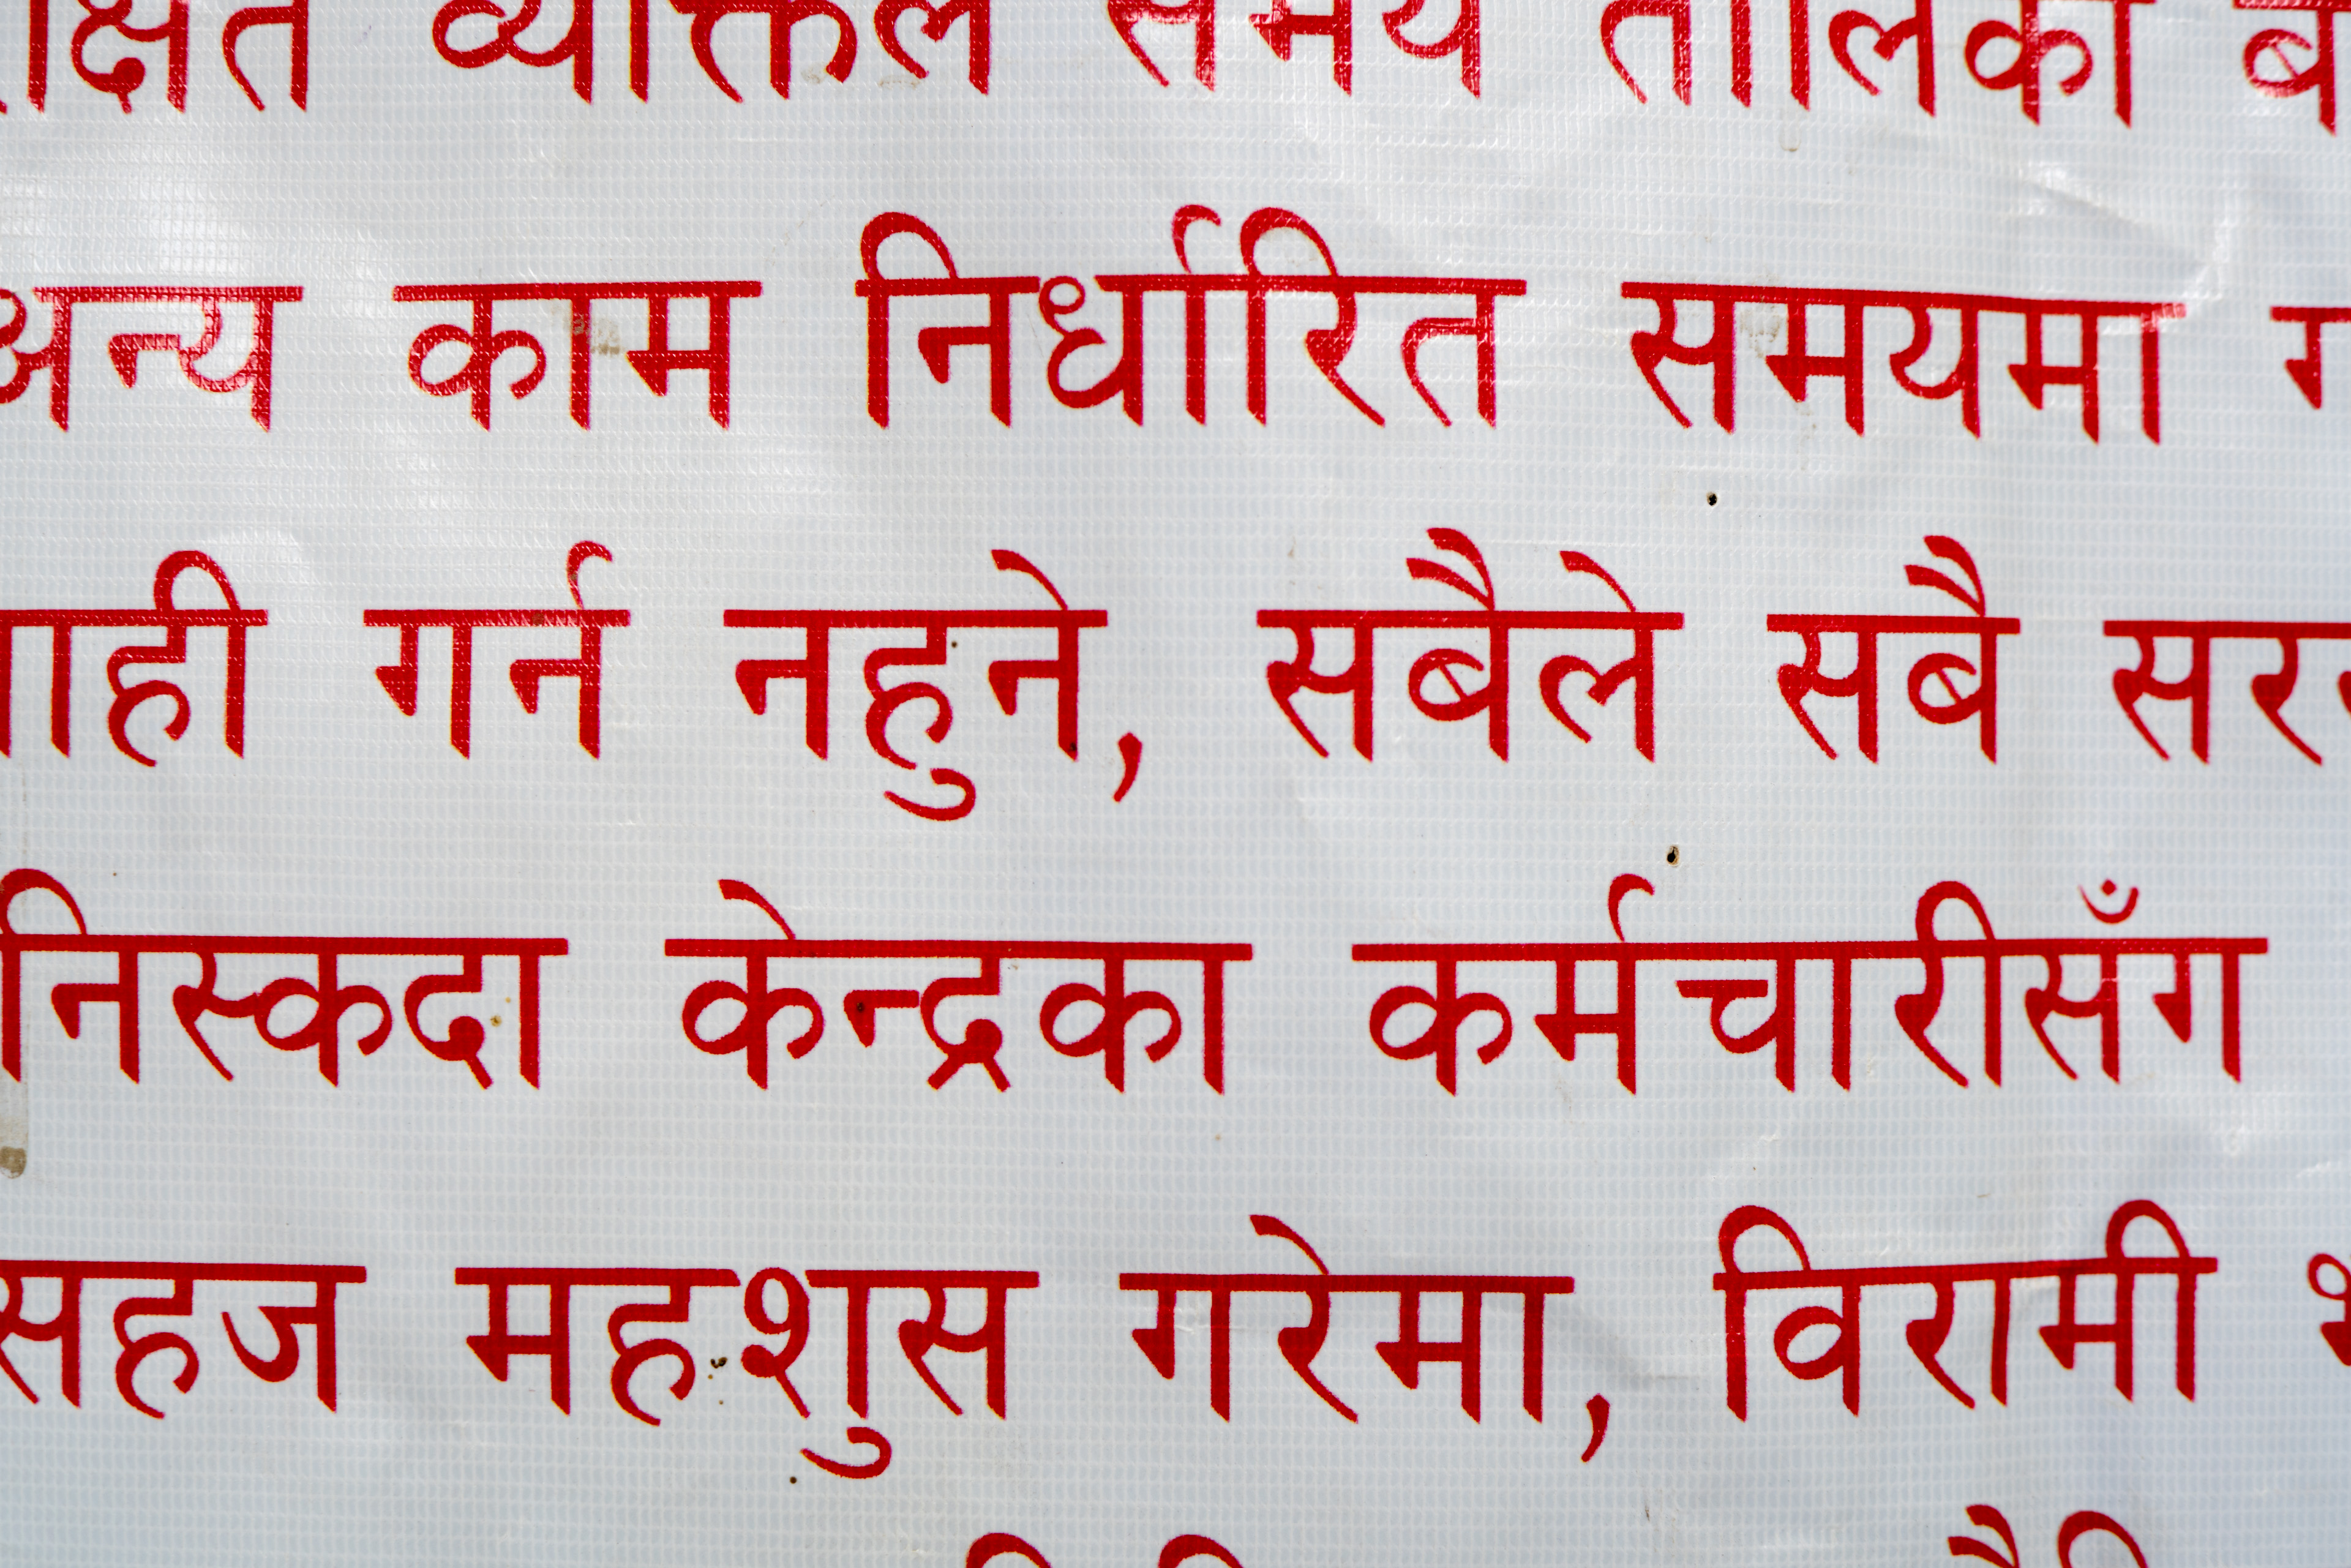 व्यक्तिले समय तालिका
अन्य काम निर्धारित समयमा
गर्न नहुने, सबैले सबै
निस्कदा केन्द्रका कर्मचारीसँग
सहज महशुस गरेमा, विरामी